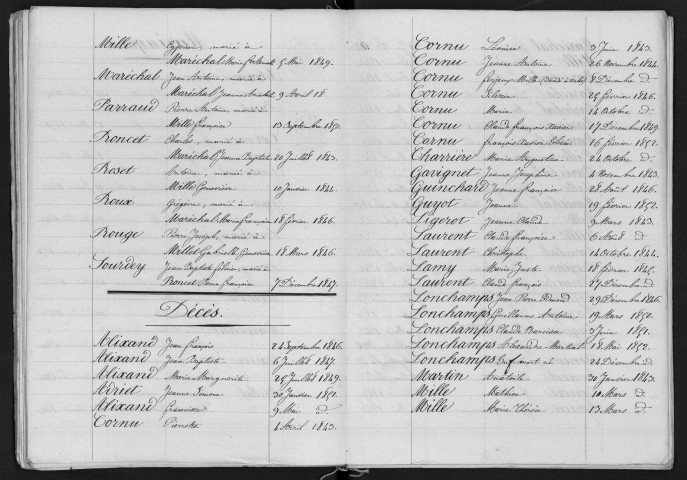 Mille Cyprien, marié à
Maréchal Marie 5 Mai 1849.
Maréchal Jean Antoine, marié à
Maréchal Jeanne 9 Avril 18
Parraud Pierre Antoine marié à
Mille Françoise 13 Septembre 1850.
Poncet Charles, marié à
Maréchal Jeanne Baptiste 20 Juillet 1843.
Poset Antoine, marié à
Mille Geneviève 10 Janvier 1844.
Roux Grégoire, marié à
Maréchal Marie Françoise 18 février 1846.
Rouge Pierre Joseph, marié à
Millet Gabrielle Geneviève 18 Mars 1846.
Sourdey Jean Baptiste marié à
Poncet Jeanne françoise 7 Décembre 1847.
Décès.
Alixand Jean françois 24 Septembre 1846.
Alixand Jean Baptiste 6 Juillet 1847
Alixand Marie Marguerite 25 Juillet 1849.
Adriet Jeanne Simone 30 Janvier 1851.
Alixand 9 Mai d.
Cornu Pierrette 4 Avril 1843.
Cornu Louise 3 Juin 1843.
Cornu Jeanne Antoine 26 Novembre 1844.
Cornu 8 Décembre d.
Cornu 25 février 1846.
Cornu Marie 14 Octobre d.
Cornu Claude françois Xavier 17 Décembre 1849.
Cornu françois Xavier 16 février 1852.
Charrière Marie Augustine 24 Octobre d.
Gavignet Jeanne Josephine 4 Novembre 1843.
Guinchard Jeanne françoise 28 Août 1846.
Guyot Jeanne 19 février 1852.
Ligerot Jeanne Claude 9 Mars 1843.
Laurent Claude françoise 6 Août d.
Laurent Christophe 14 Octobre 1844.
Lamy Marie Juste 18 février 1845.
Laurent Claude françois 27 Décembre d.
Lonchamps Jean Pierre 29 Décembre 1846.
Lonchamps Guillaume Antoine 19 Mars 1850.
Lonchamps Claude Narcisse 5 Juin 1851.
Lonchamps Martial 18 Mai 1852.
Lonchamps Enf. mort né 24 Décembre d.
Martin Anatoile 30 Janvier 1843.
Mille Mathieu 10 Mars d.
Mille Marie Thérèse 13 Mars d.